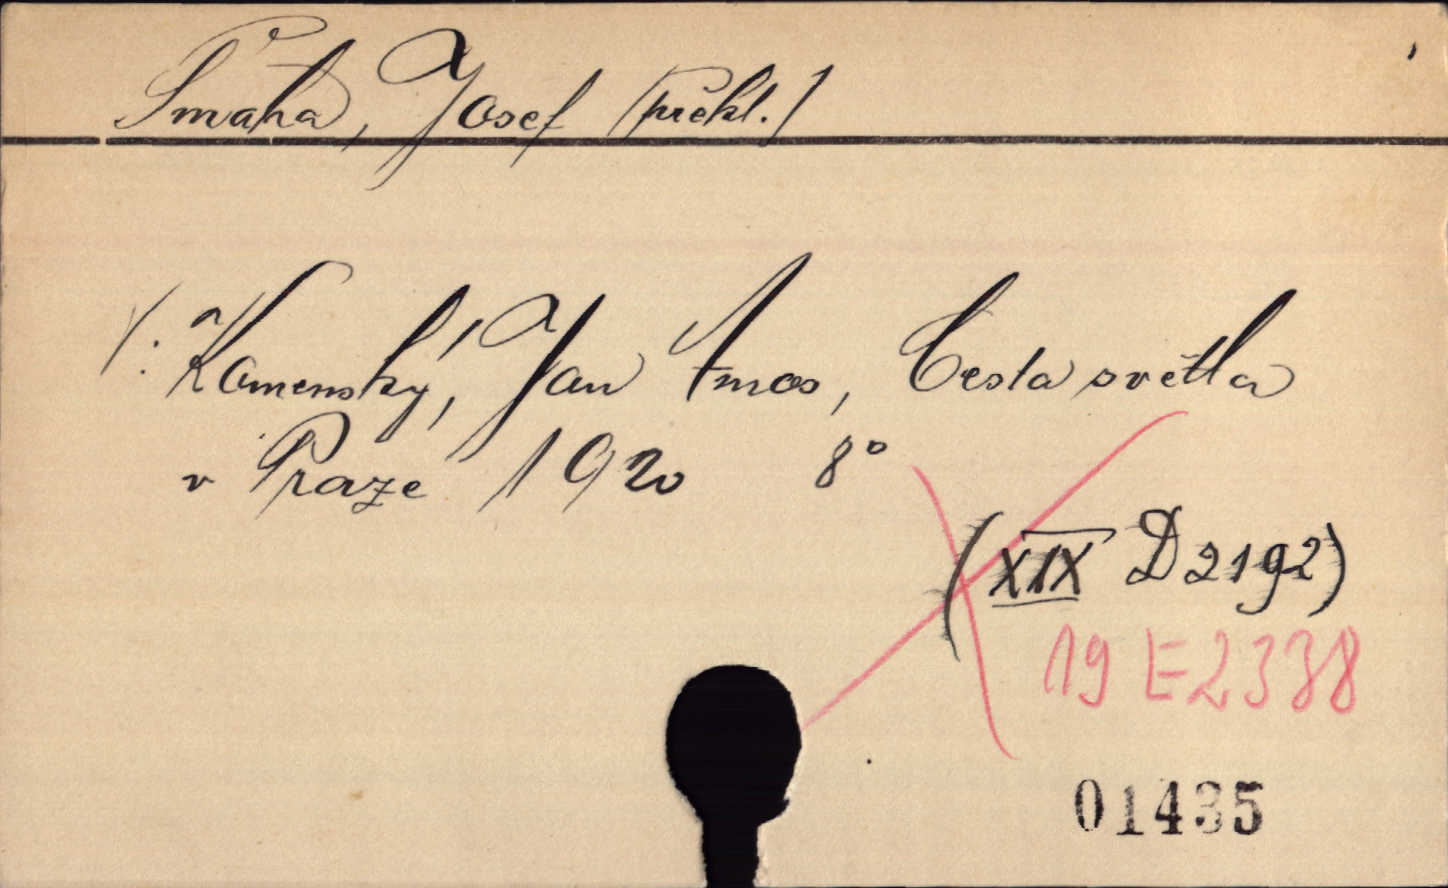 Šmaha, Josef (překl.)
/: Komenský, Jan Amos, Cesta světla
v Praze 1920 8°
(XIX D 2192)
19 E 2338
01435